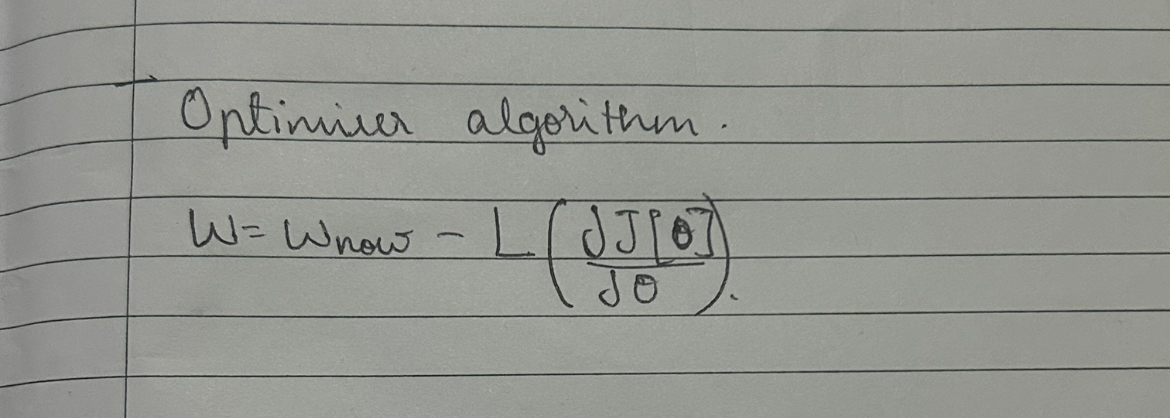 Optimiser algorithm.
W = Wnow - L (dJ[θ]/dθ).